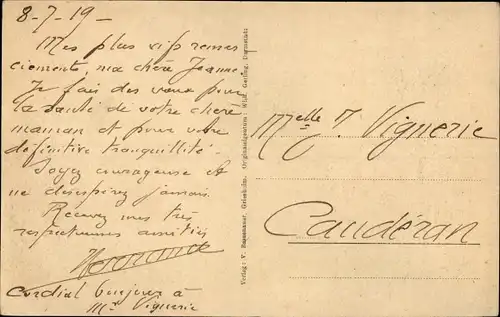 8-7-19-
Mes plus vifs remer
ciements, ma chère Jeanne.
Je fais des vœux pour
la santé de votre chère
maman et pour votre
définitive tranquillité.
Soyez courageuse et
ne désespérez jamais.
Recevez mes très
respectueuses amitiés
Cordial bonjour à
Mr Viguerie
Verlag: V. Griesheim. Originalaufnahmen: Wilh. Gerling, Darmstadt
Melle J. Viguerie
Caudéran